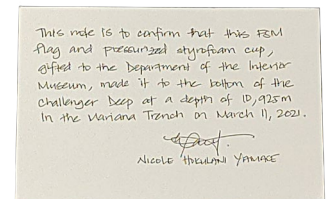 This note is to confirm that this FSM
flag and pressurized styrofoam cup,
gifted to the Department of the Interior
Museum, made it to the bottom of the
Challenger Deep at a depth of 10,925m
in the Mariana Trench on March 11, 2021.
NICOLE HOKULANI YAMASE